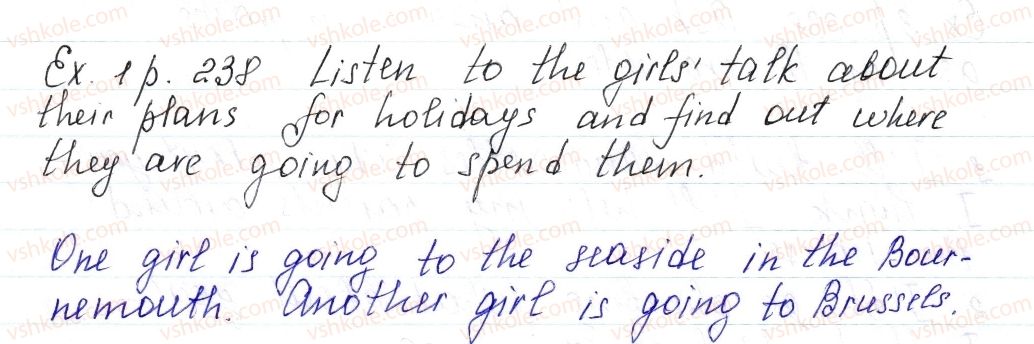 Ex. 1 p. 238 Listen to the girls' talk about
their plans for holidays and find out where
they are going to spend them.
One girl is going to the seaside in the Bour-
nemouth. Another girl is going to Brussels.